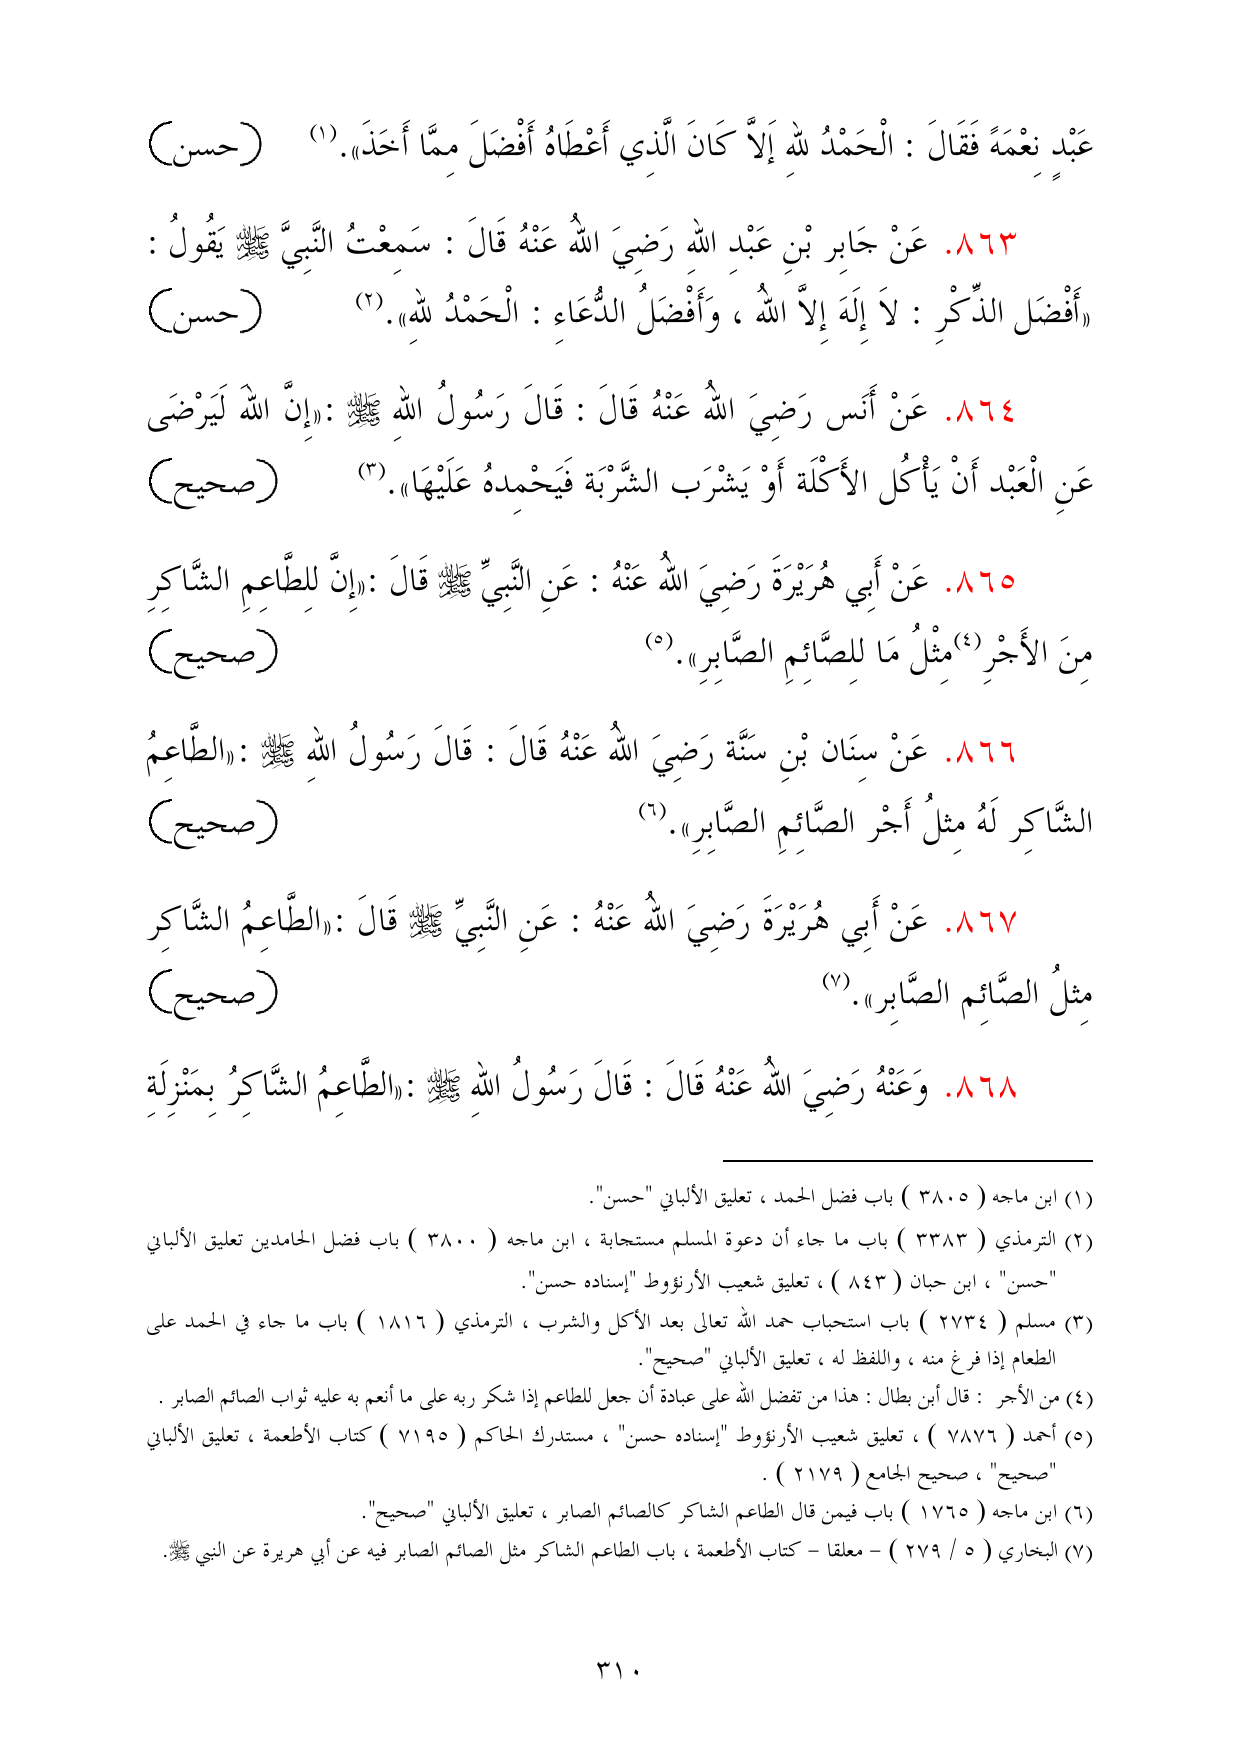 عَبْدٍ نِعْمَةً فَقَالَ : الْحَمْدُ للهِ إَلاَّ كَانَ الَّذِي أَعْطَاهُ أَفْضَلَ مِمَّا أَخَذَ». (١) (حسن)
٨٦٣. عَنْ جَابِرِ بْنِ عَبْدِ اللهِ رَضِيَ اللهُ عَنْهُ قَالَ : سَمِعْتُ النَّبِيَّ ﷺ يَقُولُ :
«أَفْضَل الذِّكْرِ : لاَ إِلَهَ إِلاَّ اللهُ ، وَأَفْضَلُ الدُّعَاءِ : الْحَمْدُ للهِ». (٢) (حسن)
٨٦٤. عَنْ أَنَسِ رَضِيَ اللهُ عَنْهُ قَالَ : قَالَ رَسُولُ اللهِ ﷺ :«إِنَّ اللهَ لَيَرْضَى
عَنِ الْعَبْدِ أَنْ يَأْكُل الأَكْلَة أَوْ يَشْرَب الشَّرْبَة فَيَحْمِدهُ عَلَيْهَا». (٣) (صحيح)
٨٦٥. عَنْ أَبِي هُرَيْرَةَ رَضِيَ اللهُ عَنْهُ : عَنِ النَّبِيِّ ﷺ قَالَ :«إِنَّ لِلطَّاعِمِ الشَّاكِرِ
مِنَ الأَجْرِ (٤) مِثْلُ مَا لِلصَّائِمِ الصَّابِرِ». (٥) (صحيح)
٨٦٦. عَنْ سِنَانِ بْنِ سَنَّة رَضِيَ اللهُ عَنْهُ قَالَ : قَالَ رَسُولُ اللهِ ﷺ :«الطَّاعِمُ
الشَّاكِرِ لَهُ مِثلُ أَجْرِ الصَّائِمِ الصَّابِرِ». (٦) (صحيح)
٨٦٧. عَنْ أَبِي هُرَيْرَةَ رَضِيَ اللهُ عَنْهُ : عَنِ النَّبِيِّ ﷺ قَالَ :«الطَّاعِمُ الشَّاكِرِ
مِثلُ الصَّائِمِ الصَّابِرِ». (٧) (صحيح)
٨٦٨. وَعَنْهُ رَضِيَ اللهُ عَنْهُ قَالَ : قَالَ رَسُولُ اللهِ ﷺ :«الطَّاعِمُ الشَّاكِرُ بِمَنْزِلَةِ
(١) ابن ماجه ( ٣٨٠٥ ) باب فضل الحمد ، تعليق الألباني "حسن".
(٢) الترمذي ( ٣٣٨٣ ) باب ما جاء أن دعوة المسلم مستجابة ، ابن ماجه ( ٣٨٠٠ ) باب فضل الحامدين تعليق الألباني
"حسن" ، ابن حبان ( ٨٤٣ ) ، تعليق شعيب الأرنؤوط "إسناده حسن".
(٣) مسلم ( ٢٧٣٤ ) باب استحباب حمد الله تعالى بعد الأكل والشرب ، الترمذي ( ١٨١٦ ) باب ما جاء في الحمد على
الطعام إذا فرغ منه ، واللفظ له ، تعليق الألباني "صحيح".
(٤) من الأجر : قال أبن بطال : هذا من تفضل الله على عبادة أن جعل للطاعم إذا شكر ربه على ما أنعم به عليه ثواب الصائم الصابر .
(٥) أحمد ( ٧٨٧٦ ) ، تعليق شعيب الأرنؤوط "إسناده حسن" ، مستدرك الحاكم ( ٧١٩٥ ) كتاب الأطعمة ، تعليق الألباني
"صحيح" ، صحيح الجامع ( ٢١٧٩ ) .
(٦) ابن ماجه ( ١٧٦٥ ) باب فيمن قال الطاعم الشاكر كالصائم الصابر ، تعليق الألباني "صحيح".
(٧) البخاري ( ٥ / ٢٧٩ ) – معلقا – كتاب الأطعمة ، باب الطاعم الشاكر مثل الصائم الصابر فيه عن أبي هريرة عن النبي ﷺ.
٣١٠